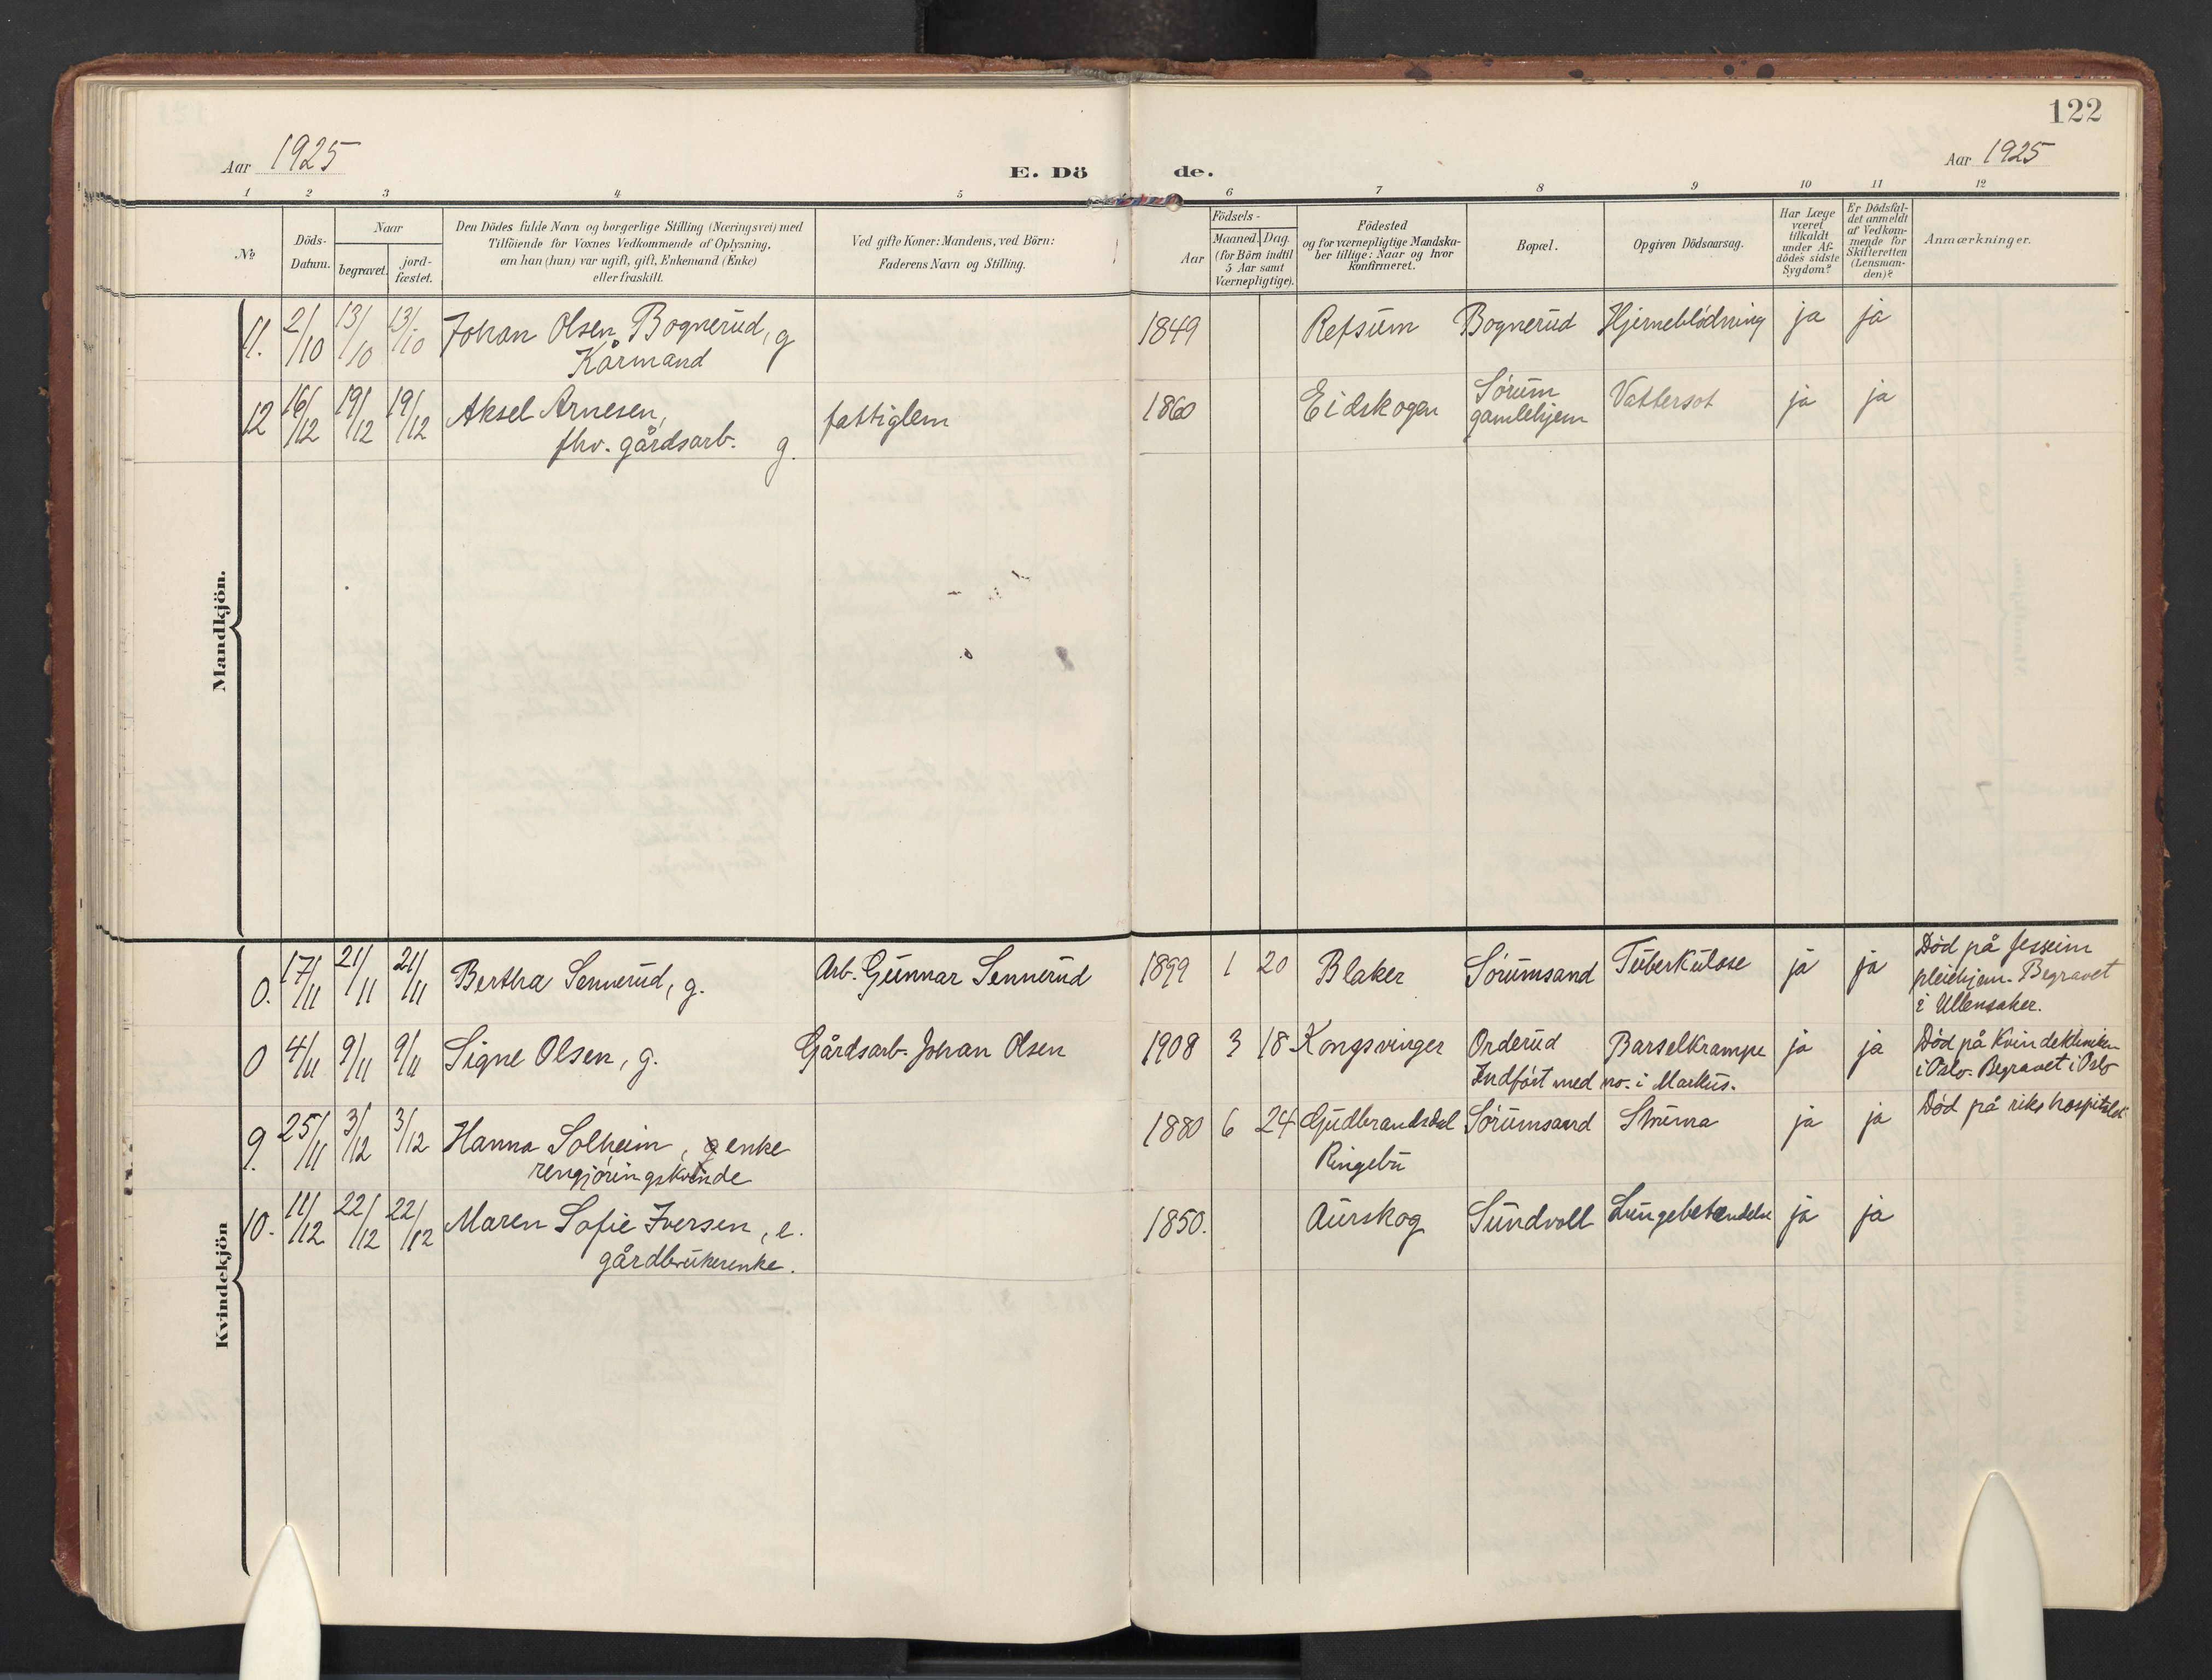 122
Aar 1925
E. Dö
de.
Aar 1925
1 2 3 4 5 6 7 8 9 10 11 12
No
Döds-
Datum.
Naar
begravet.
jord-
fæstet.
Den Dödes fulde Navn og borgerlige Stilling (Næringsvei) med
Tilföiende for Voxnes Vedkommende af Oplysning,
om han (hun) var ugift, gift, Enkemand (Enke)
eller fraskilt.
Ved gifte Koner: Mandens, ved Börn:
Faderens Navn og Stilling.
Födsels-
Aar
Maaned. Dag.
(for Börn indtil
5 Aar samt
Værnepligtige).
Födested
og for værnepligtige Mandska-
ber tillige: Naar og hvor
konfirmeret.
Bopæl.
Opgiven Dödsaarsag.
Har Læge
været
tilkaldt
under Af-
dödes sidste
Sygdom?
Er Dödsfal-
det anmeldt
af Vedkom-
mende for
Skifteretten
(Lensman-
den)?
Anmærkninger.
Mandkjön.
11. 2/10 13/10 13/10 Johan Olsen Bognerud, g 1849 Refsum Bognerud Hjerneblödning ja ja
Kårmand
12 16/12 19/12 19/12 Aksel Arnesen, fattiglem 1860 Eidskogen Sörum Vattersot ja ja
fhv. gårdsarb. g. gamlehjem
Kvindekjön
0. 17/11 21/11 21/11 Bertha Sennerud, g. Arb. Gunnar Sennerud 1899 1 20 Blaker Sörumsand Tuberkulose ja ja Död på Jessheim
pleiehjem. Begravet
i Ullensaker.
0 4/11 9/11 9/11 Signe Olsen, g. Gårdsarb. Johan Olsen 1908 3 18 Kongsvinger Orderud Barselkrampe ja ja Död på Kvindekliniken
Indfört med no. i Markus. i Oslo. Begravet i Oslo
9. 25/11 3/12 3/12 Hanna Solheim, g enke 1880 6 24 Gudbrandsdal Sörumsand Struma ja ja Död på rikshospitalet
rengjöringskvinde Ringebu
10. 11/12 22/12 22/12 Maren Sofie Iversen, e. 1850. Aurskog Sundvoll Lungebetendelse ja ja
gårdbrukerenke.